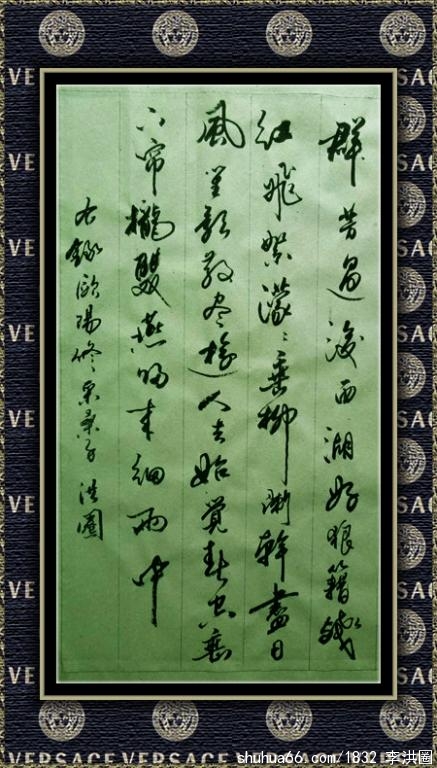 群芳過後西湖好狼籍殘
红飛絮濛〻垂柳闌幹盡日
風笙歌散尽遊人去始覺春空垂
下帘櫳雙燕歸来細雨中
右錄歐陽修采桑子 洪圈
VERSACE VERSACE VERSACE
shuhua66.com/1832 李洪圈